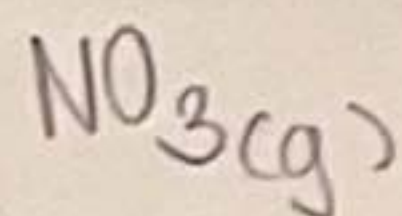 NO₃(g)